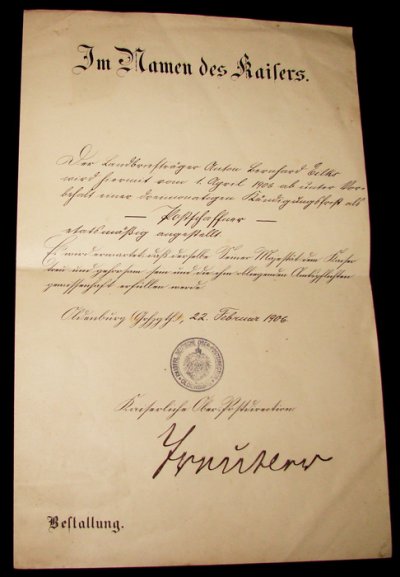 Im Namen des Kaisers.
Der Landbriefträger Anton Bernhard Eilks
wird hiermit vom 1. April 1906 ab unter Vor-
behalt einer dreimonatigen Kündigungsfrist als
— Postschaffner —
etatsmäßig angestellt.
Es wird erwartet, daß derselbe Seiner Majestät dem Kaiser
treu und gehorsam sein und die ihm obliegenden Amtspflichten
gewissenhaft erfüllen werde.
Oldenburg 22. Februar 1906.
Kaiserliche Ober-Postdirection
Bestallung.